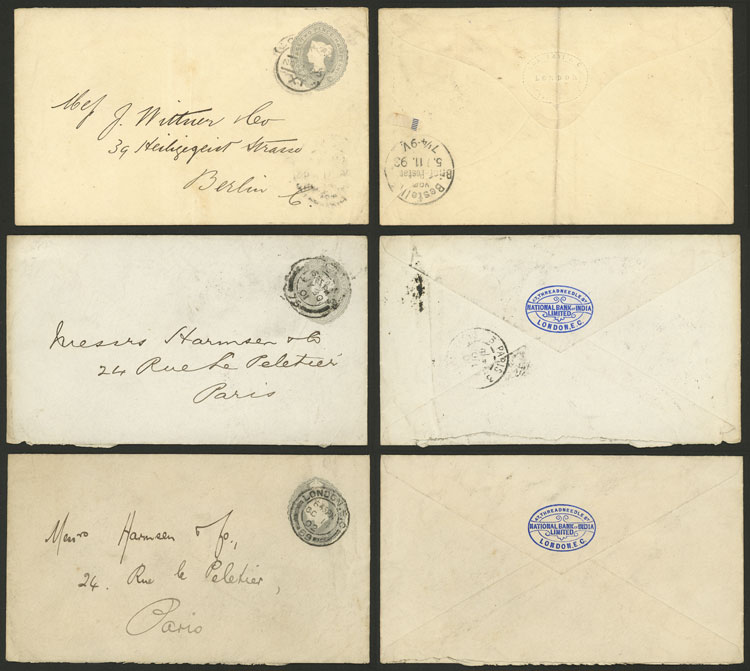 Mess J. Wittner & Co
39 Heiligegeist Strasse
Berlin C.
LONDON
Bestellt
vom
Postamt
5.11.93
7¼-9V.
Messrs Harmsen & Co
24 Rue Le Peletier
Paris
39A, THREADNEEDLE ST
NATIONAL BANK OF INDIA
LIMITED.
LONDON, E.C.
PARIS
Messrs Harmsen & Co.,
24. Rue le Peletier,
Paris
LONDON E.C
39A, THREADNEEDLE ST
NATIONAL BANK OF INDIA
LIMITED.
LONDON, E.C.